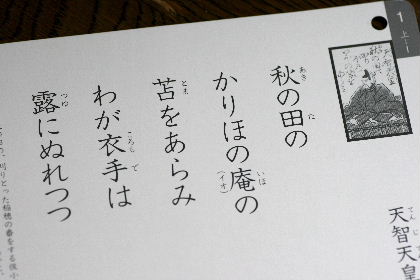 1
上一
秋の田の
かりほの庵の
苫をあらみ
わが衣手は
露にぬれつつ
天智天皇
あき
た
いほ
(イオ)
とま
ころも
で
つゆ
てんじ